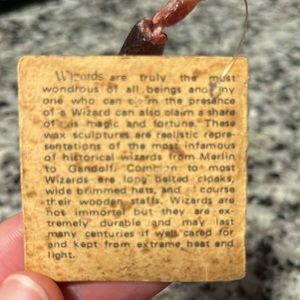 Wizards are truly the most
wondrous of all beings and any
one who can claim the presence
of a Wizard can also claim a share
of its magic and fortune. These
wax sculptures are realistic repre-
sentations of the most infamous
of historical wizards from Merlin
to Gandolf. Common to most
Wizards are long belted cloaks,
wide brimmed hats, and of course
their wooden staffs. Wizards are
not immortal but they are ex-
tremely durable and may last
many centuries if well cared for
and kept from extreme heat and
light.